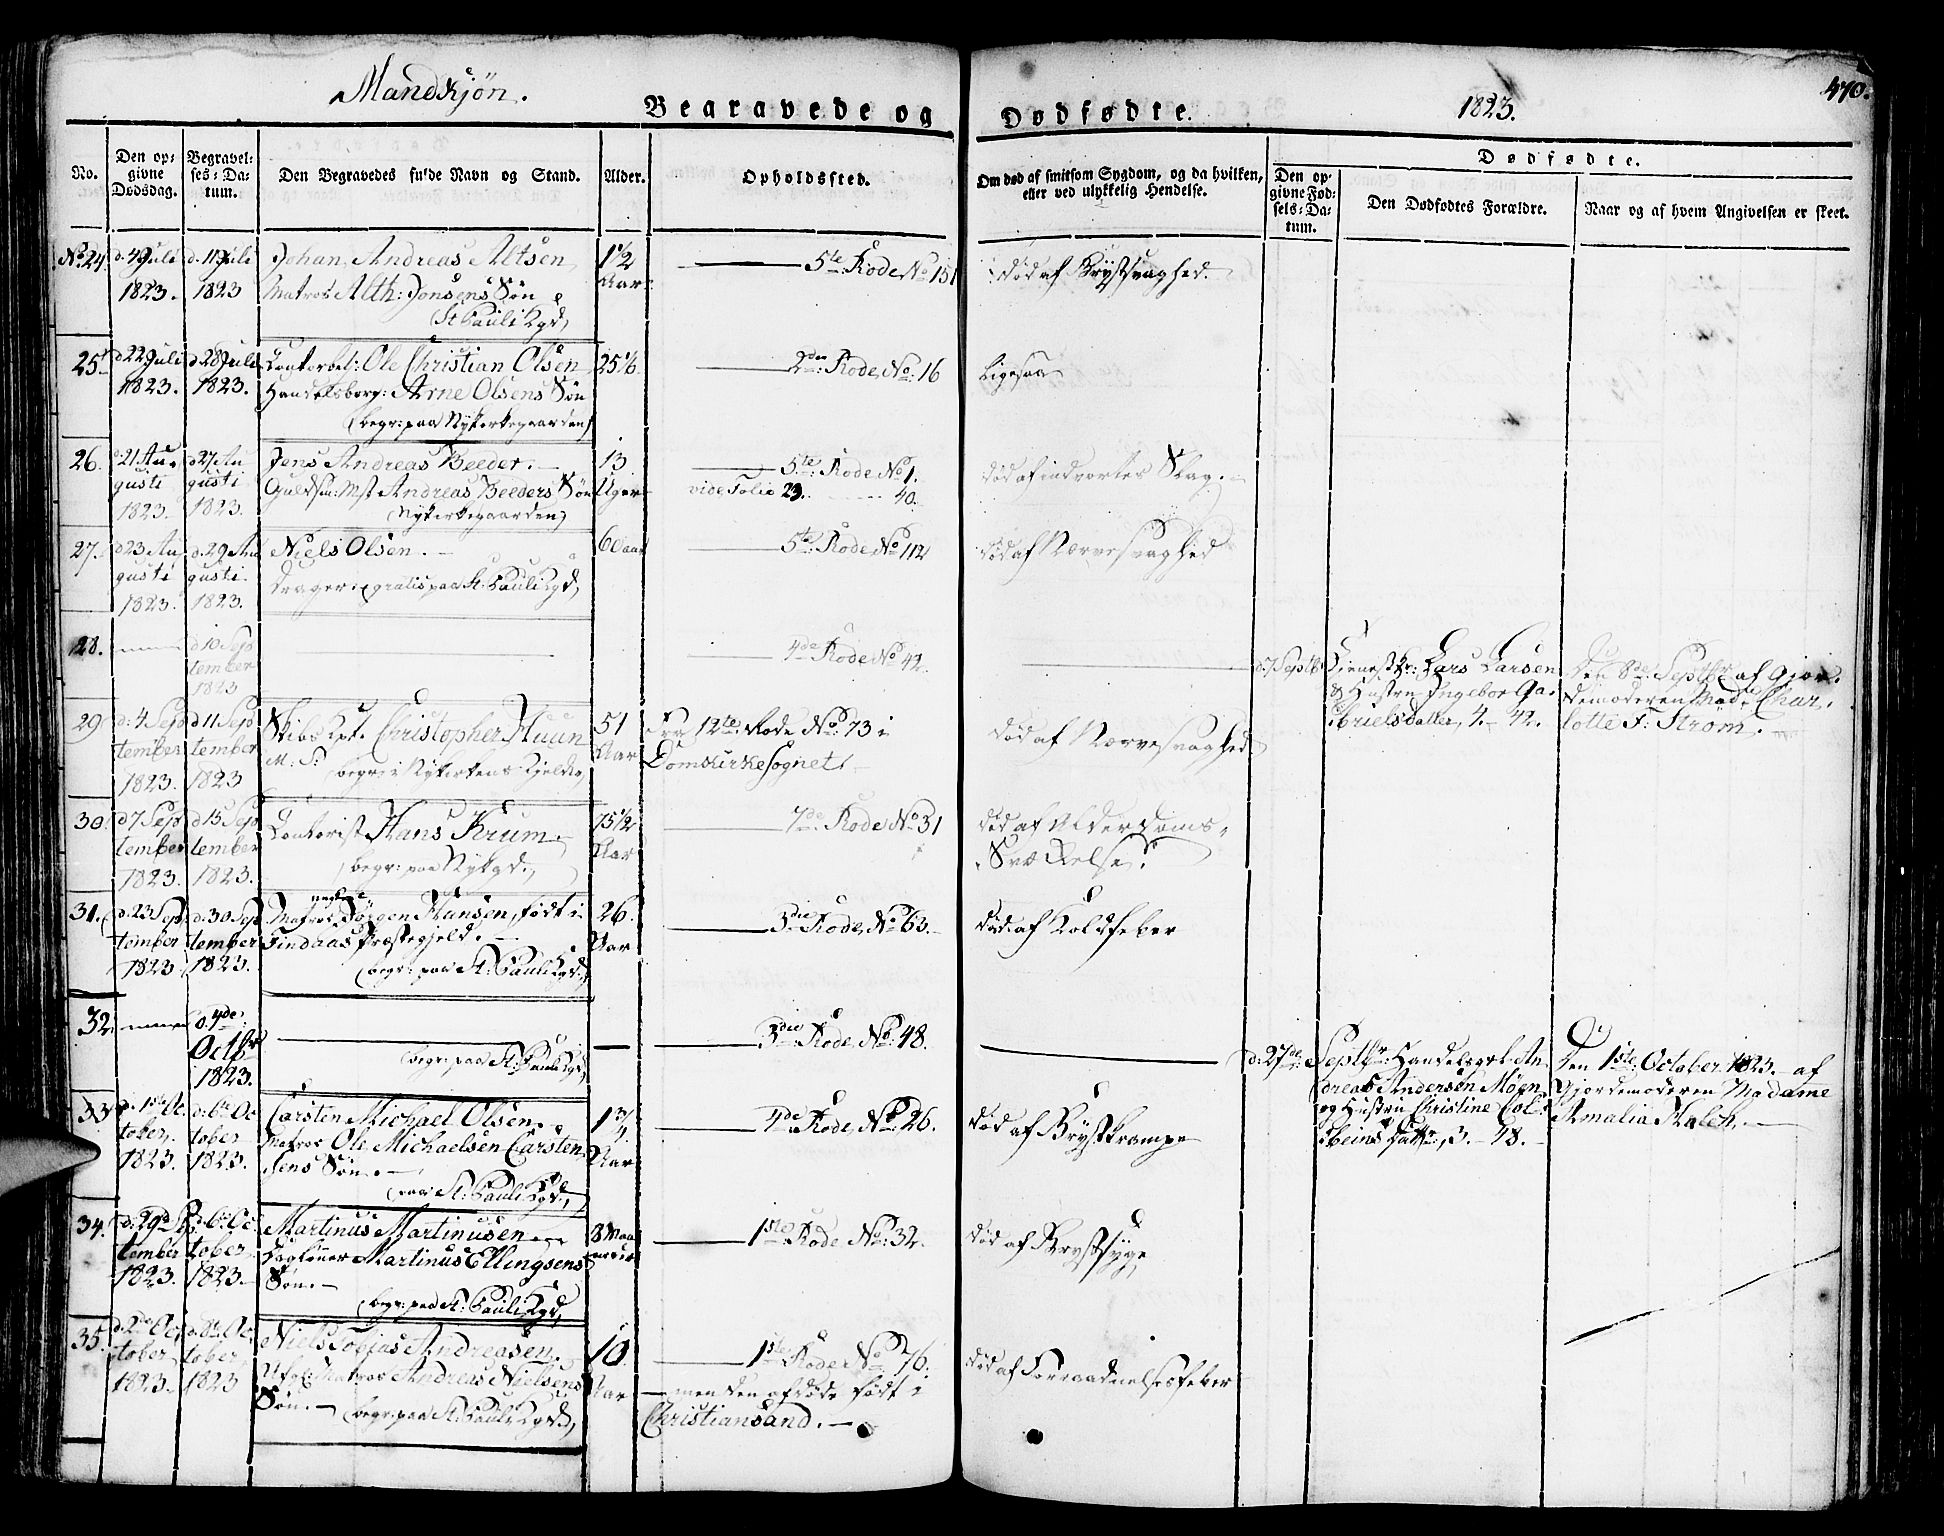 Mandkjøn.
Begravede og Dødfødte.
1823.
470.
No.
Den opgivne Dødsdag.
Begravelses-Datum.
Den Begravedes fulde Navn og Stand.
Alder.
Opholdssted.
Om død af smitsom Sygdom, og da hvilken, eller ved ulykkelig Hendelse.
Dødfødte.
Den opgivne Fødsels-Datum.
Den Dødfødtes Forældre.
Naar og af hvem Angivelsen er skeet.
No 24. d. 4 Juli 1823. d. 11 Juli 1823
Johan Andreas Altsen
Matros Alth: Jonsens Søn
(St Pauli Kgd)
1½ Aar
5te Rode No 151
død af Brystsvaghed.
25. d 22 Juli 1823. d. 28 Juli 1823.
Contorbet: Ole Christian Olsen
Handelsborg: Arne Olsens Søn
(begr: paa Nykirkegaarden)
25⅙
2den Rode No: 16
Ligesaa
26. d. 21 Augusti 1823. d 27 Augusti 1823.
Jens Andreas Beeder. —
Guldsm: Mst Andreas Beeders Søn
(Nykirkegaarden)
13 Uger
5te Rode No 1.
vide Folio 23. 40.
død af indvortes Slag. —
27. d 23 Augusti 1823. d. 29 Augusti 1823.
Niels Olsen. —
Drager. gratis paa St. Pauli Kgd,
60 aar
5te Rode No 112
død af Nervesvaghed
28. d 10 September 1823
4de Rode No 42.
d. 7 Septbr
Tienestkr: Lars Larsen
& Hustru Ingebor Ga-
brielsdatter, 4 - 42.
Den 8de Septbr af Gjor-
demoderen Mad: Char-
lotte F: Strøm. —
29 d: 4 September 1823. d 11 September 1823
Skibs Kpt. Christopher Huun
M. S. (begr: i Nykirkens Kjelder,
51 Aar
fra 12te Rode No 73 i
Domkirkesognet. —
død af Nervesvaghed
30. d 7 September 1823. d 15 September 1823.
Contorist Hans Krum —
(begr: paa Nykgd.,
75½ Aar
7de Rode No 31
død af Alderdoms-
Svækkelse.
31. d. 23 September 1823 d. 30 September 1823.
Matros Jørgen Hansen, født i
Findaas Præstegjeld. —
(begr: paa St: Pauli Kgd.,
26. Aar
3die Rode, No 63. —
død af Koldfeber
32. d. 4de Octbr 1823.
(begr: paa St: Pauli Kgd,
3die Rode, No: 48.
d. 27de Septbr:
Handelsgrl. An-
dreas Andersøn Møen
og Hustru Christine Col-
beins Dattr, 3. - 48. —
Den 1ste October 1823. — af
Gjordemoderen Madame
Amalia Kaleh. —
33 d. 1ste October 1823. d. 6te October 1823.
Carsten Michael Olsen.
Matros Ole Michaelsen Carsten-
sens Søn. —
(paa St: Pauli Kgd.,
1¾ Aar
4de Rode, No 26.
død af Brystkrampe
34. d: 29d September 1823. d. 6te October 1823. —
Martinus Martinusen
Dagløner Martinus Ellingsens
Søn. —
(begr: paa St: Pauli Kgd,
8 Maaneder
1ste Rode No: 32.
død af Brystsyge,
35. d. 2de October 1823. — d. 8de October, 1823
Niels Tobias Andreasen.
Ufgl: Matros Andreas Nielsens
Søn. — (begr: paa St: Pauli Kgd.,
10 Aar
1ste Rode No 76.
— men den afdøde født i
Christiansand. —
død af Forraadnelsesfeber